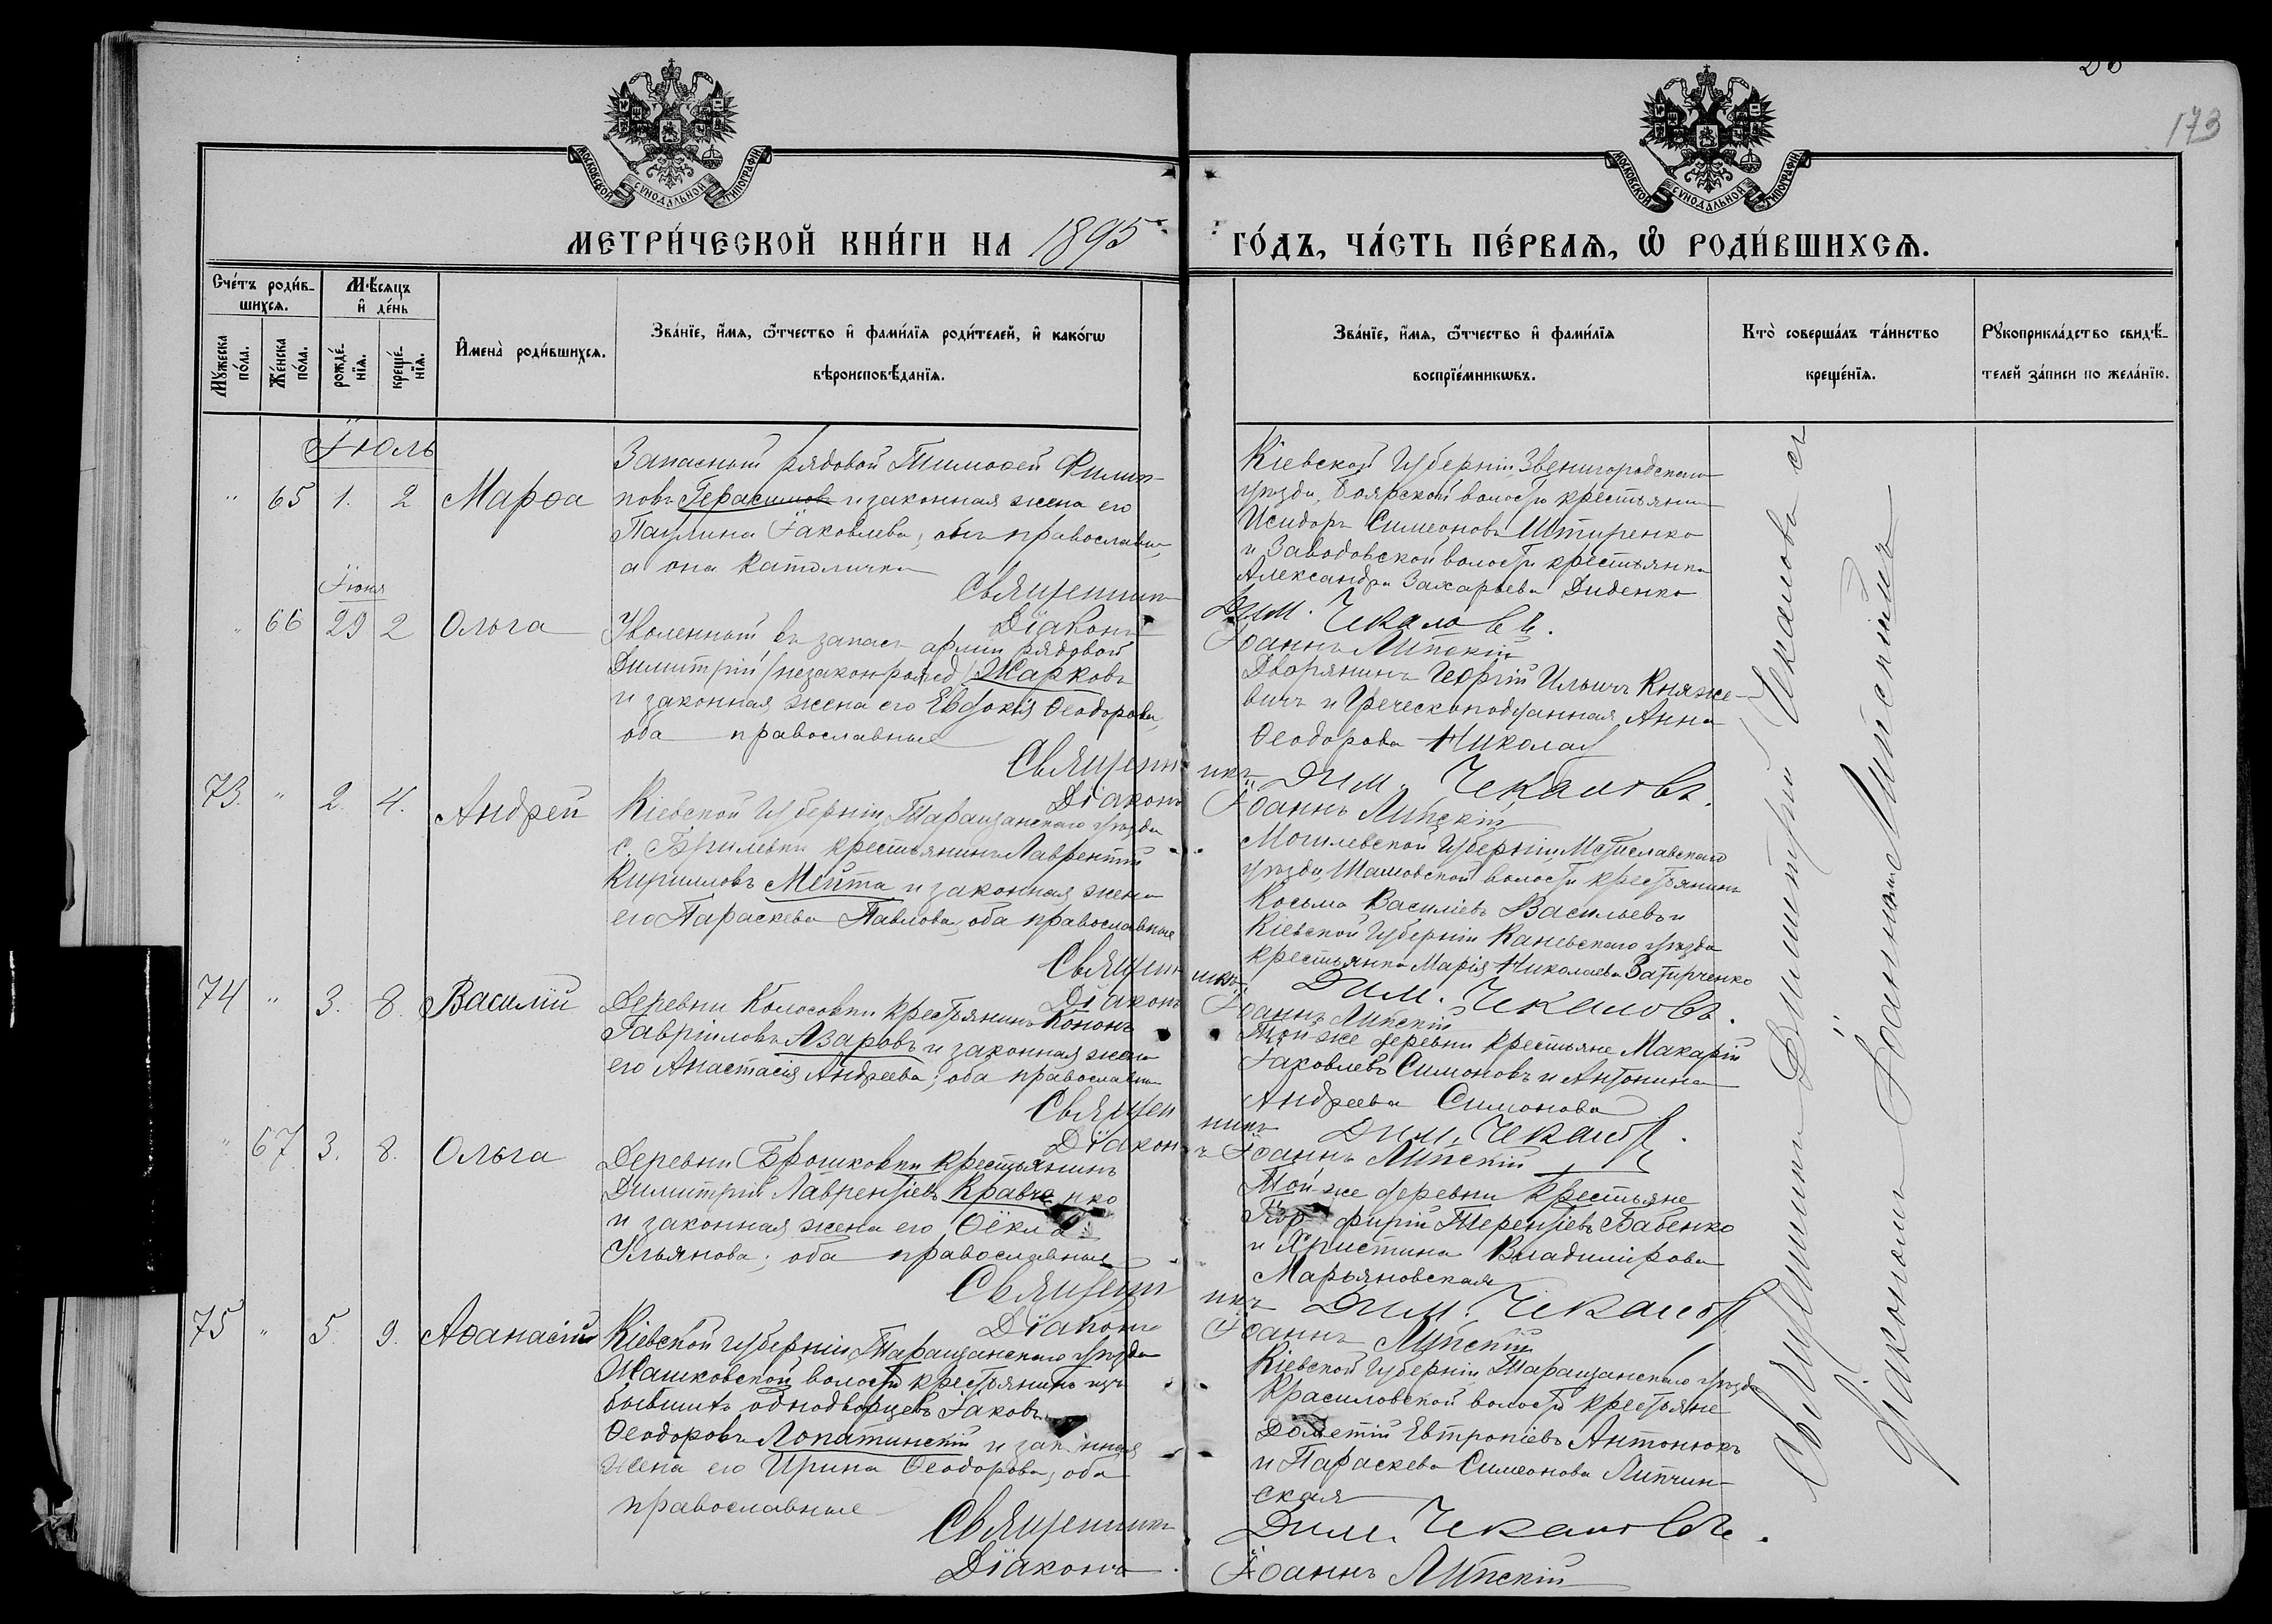 26
173
МОСКОВСКОЙ СУНОДАЛЬНОЙ ТИПОГРАФІИ
МОСКОВСКОЙ СУНОДАЛЬНОЙ ТИПОГРАФІИ
МЕТРИ́ЧЕСКОЙ КНИ́ГИ НА 1895
ГО́ДЪ, ЧА́СТЬ ПЕ́РВАѦ, Ѽ РОДИ́ВШИХСѦ.
Сче́тъ роди́в-
шихсѧ.
Мѣ́сѧцъ
и҆ де́нь
Мꙋ́жеска
по́ла.
Же́нска
по́ла.
рожде́-
нїѧ.
креще́-
нїѧ.
И҆мена̀ роди́вшихсѧ.
Зва́нїе, и҆́мѧ, ѻ҆́тчество и҆ фами́лїѧ роди́телей, и҆ како́гѡ
вѣроисповѣ́данїѧ.
Зва́нїе, и҆́мѧ, ѻ҆́тчество и҆ фами́лїѧ
воспрїе́мникѡвъ.
Кто̀ соверша́лъ та́инство
креще́нїѧ.
Рꙋкоприкла́дство свидѣ́-
телей за́писи по жела́нїю.
Іюль
" 65 1. 2 Марѳа
Запасный рядовой Тимоѳей Филип-
повъ Герасимов и законная жена его
Паулина Іаковлева; онъ православн.,
а она католичка
Священникъ
Діаконъ
Кіевской Губерніи Звенигородскаго
уѣзда, Боярской волости крестьянин
Исидоръ Симеоновъ Штиренко
и Заводовской волости крестьянка
Александра Захарьева Диденко
Дим. Чекаловъ.
Іоаннъ Липскій
Іюня
" 66 29 2 Ольга
Уволенный въ запасъ арміи рядовой
Димитрій /незаконрожд/ Жарковъ
и законная жена его Евдокія Ѳеодорова,
оба православные
Священ-
Діаконъ
Дворянинъ Георгій Ильичъ Княже-
вичъ и Греческоподданная Анна
Ѳеодорова Николай
никъ Дим. Чекаловъ.
Іоаннъ Липскій
73. " 2. 4. Андрей
Кіевской Губерніи Таращанскаго уѣзда
с. Брилевки крестьянинъ Лаврентій
Кирилловъ Мейта и законная жена
его Параскева Павлова, оба православные
Священ
Діаконъ
Могилевской Губерніи, Мстиславскаго
уѣзда, Шамовской волости крестьянинъ
Косьма Василіевъ Васильевъ и
Кіевской Губерніи Каневскаго уѣзда
крестьянка Марія Николаева Затирченко
никъ Дим. Чекаловъ.
Іоаннъ Липскій
74 " 3. 8. Василій
Деревни Колосовки крестьянинъ Кононъ
Гавріиловъ Азаровъ и законная жена
его Анастасія Андреева; оба православны
Священ
Діаконъ
Той же деревни крестьяне Макарій
Іаковлевъ Симоновъ и Антонина
Андреева Симонова
никъ Дим. Чекаловъ.
Іоаннъ Липскій
" 67 3. 8. Ольга
Деревни Брошковки крестьянинъ
Димитрій Лаврентіевъ Кравченко
и законная жена его Ѳёкла
Ульянова; оба православные
Священ
Діаконъ
Той же деревни крестьяне
Порфирій Терентіевъ Бабенко
и Христина Владимірова
Марьяновская
никъ Дим. Чекаловъ
Іоаннъ Липскій
75 " 5. 9. Аѳанасій
Кіевской губерніи, Таращанскаго уѣзда
Жашковской волости крестьянинъ изъ
бывшихъ однодворцевъ Іаковъ
Ѳеодоровъ Лопатинскій и законная
жена его Ирина Ѳеодорова, оба
православные
Священникъ
Діаконъ
Кіевской Губерніи Таращанскаго уѣзда
Красиловской волости крестьяне
Дометій Евтропіевъ Антонюкъ
и Параскева Симеонова Липчин-
ская
Дим. Чекаловъ.
Іоаннъ Липскій
Священникъ Димитрій Чекаловъ съ
діакономъ Іоанномъ Липскимъ